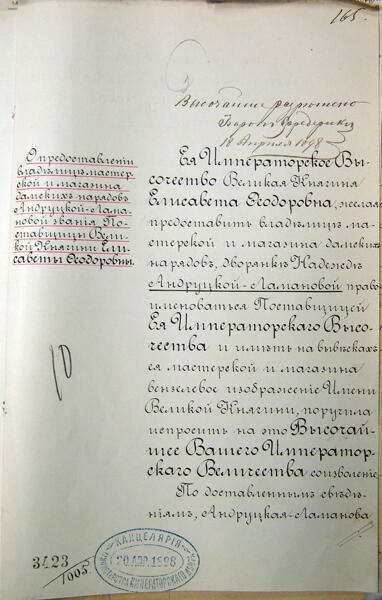 165.
Высочайше разрешено
Баронъ Фредериксъ
18 Апрѣля 1898 г.
О предоставленіи
владѣлицѣ мастер-
ской и магазина
дамскихъ нарядовъ
Андруцкой-Лама-
новой званія По-
ставщицы Вели-
кой Княгини Ели-
саветы Ѳеодоровны.
Ея Императорское Вы-
сочество Великая Княгиня
Елисавета Ѳеодоровна, желая
предоставить владѣлицѣ ма-
стерской и магазина дамскихъ
нарядовъ, дворянкѣ Надеждѣ
Андруцкой-Ламановой право
именоваться Поставщицей
Ея Императорскаго Высо-
чества и имѣть на вывѣскахъ
ея мастерской и магазина
вензелевое изображеніе Имени
Великой Княгини, поручила
испросить на это Высочай-
шее Вашего Император-
скаго Величества соизволеніе.
По доставленнымъ свѣдѣ-
ніямъ, Андруцкая-Ламанова
10
КАНЦЕЛЯРІЯ
20 АПР. 1898
МИНИСТЕРСТВА ИМПЕРАТОРСКАГО ДВОРА
3423
1005.